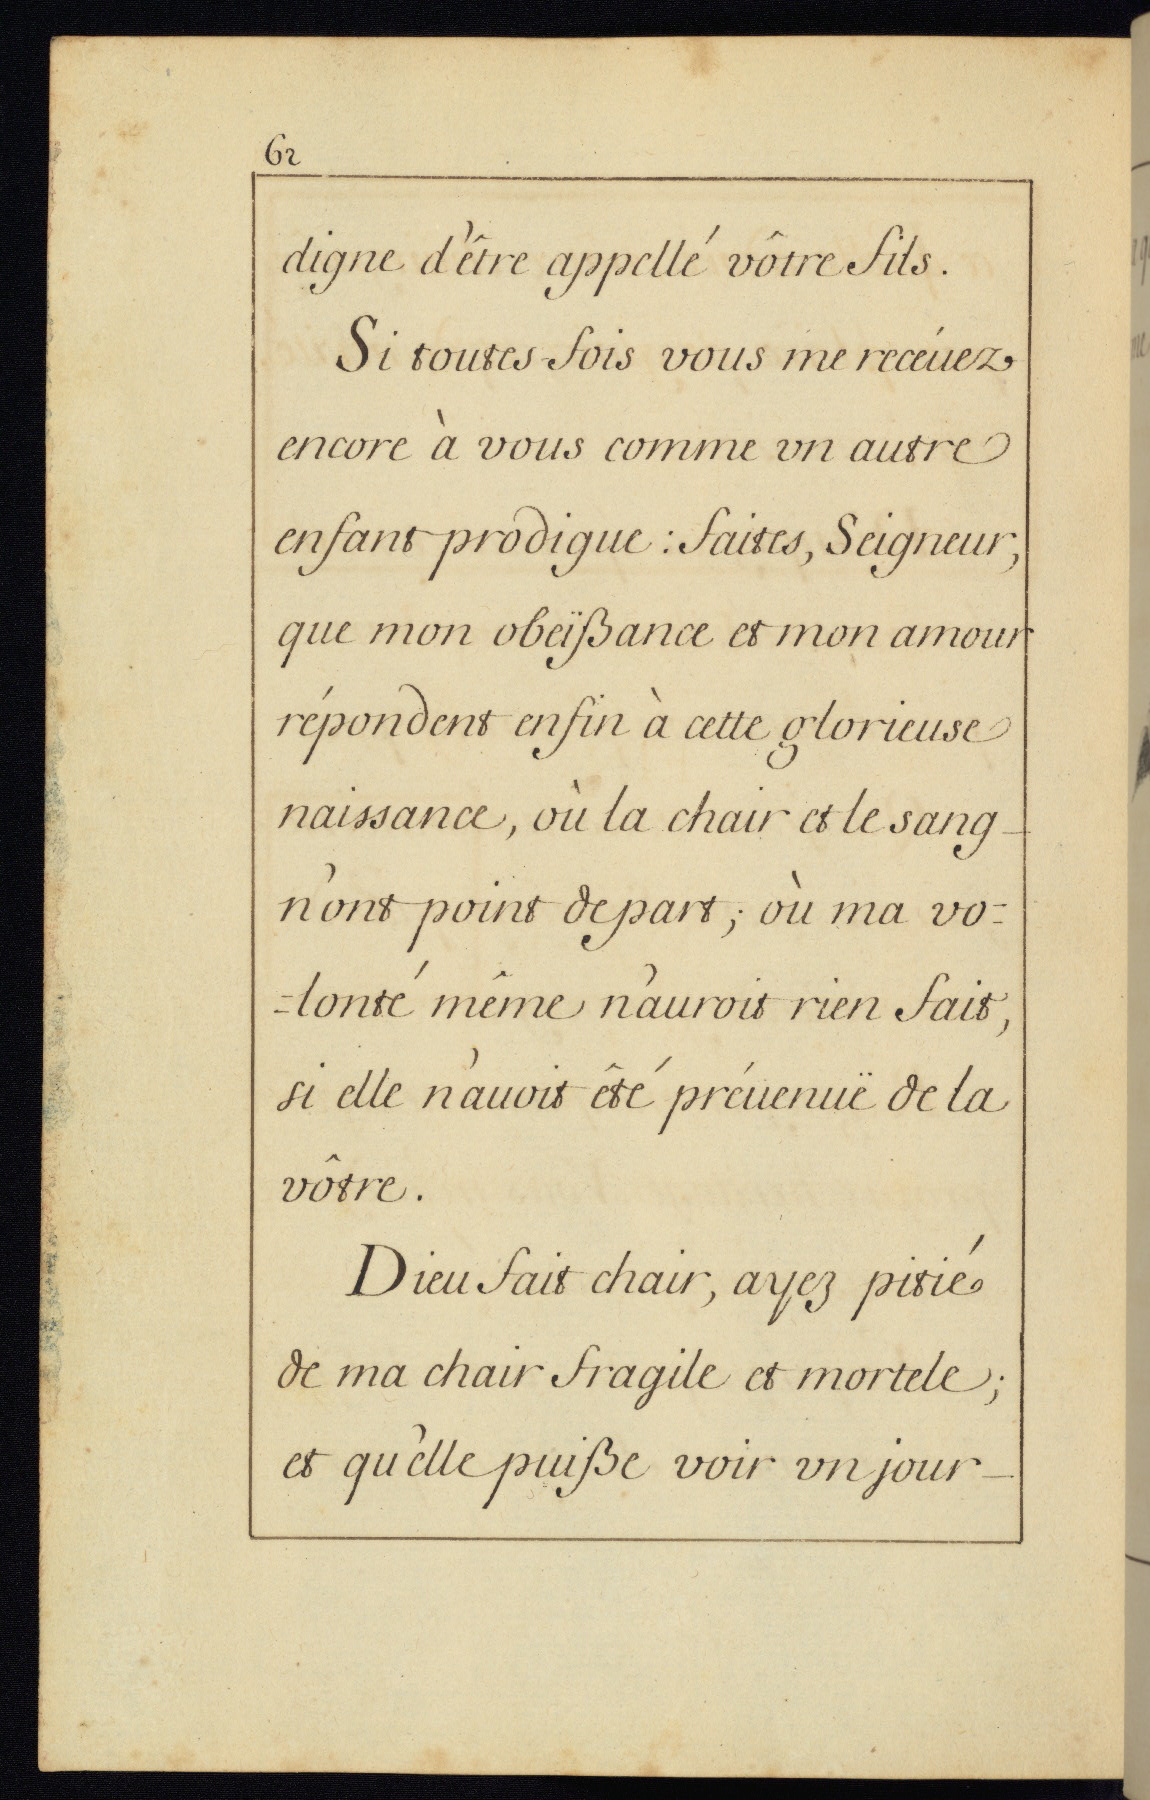 62
digne d'être appellé vôtre fils.
Si toutes-fois vous me recéuez
encore à vous comme vn autre
enfant prodigue : faites, Seigneur,
que mon obeïßance et mon amour
répondent enfin à cette glorieuse
naissance, où la chair et le sang
n'ont point de part ; où ma vo=
=lonté même n'auroit rien fait,
si elle n'auoit êté préuenuë de la
vôtre.
Dieu fait chair, ayez pitié
de ma chair fragile et mortele ;
et qu'elle puiße voir vn jour